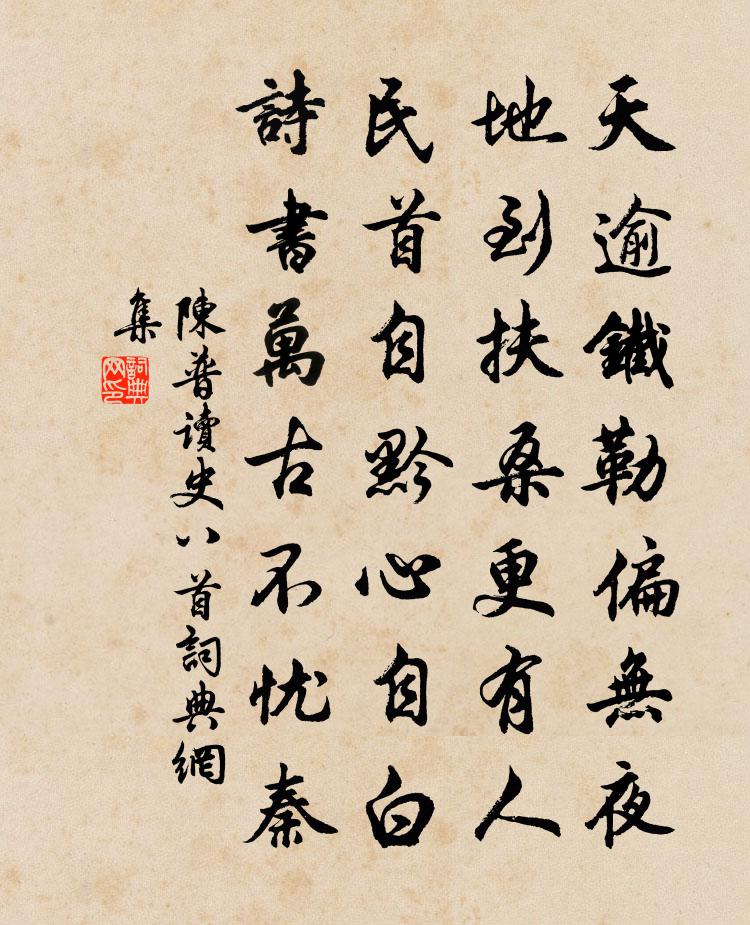 天逾鐵勒偏無夜
地到扶桑更有人
民首自黔心自白
詩書萬古不忧秦
陳普讀史八首詞典網
集
詞典
网印